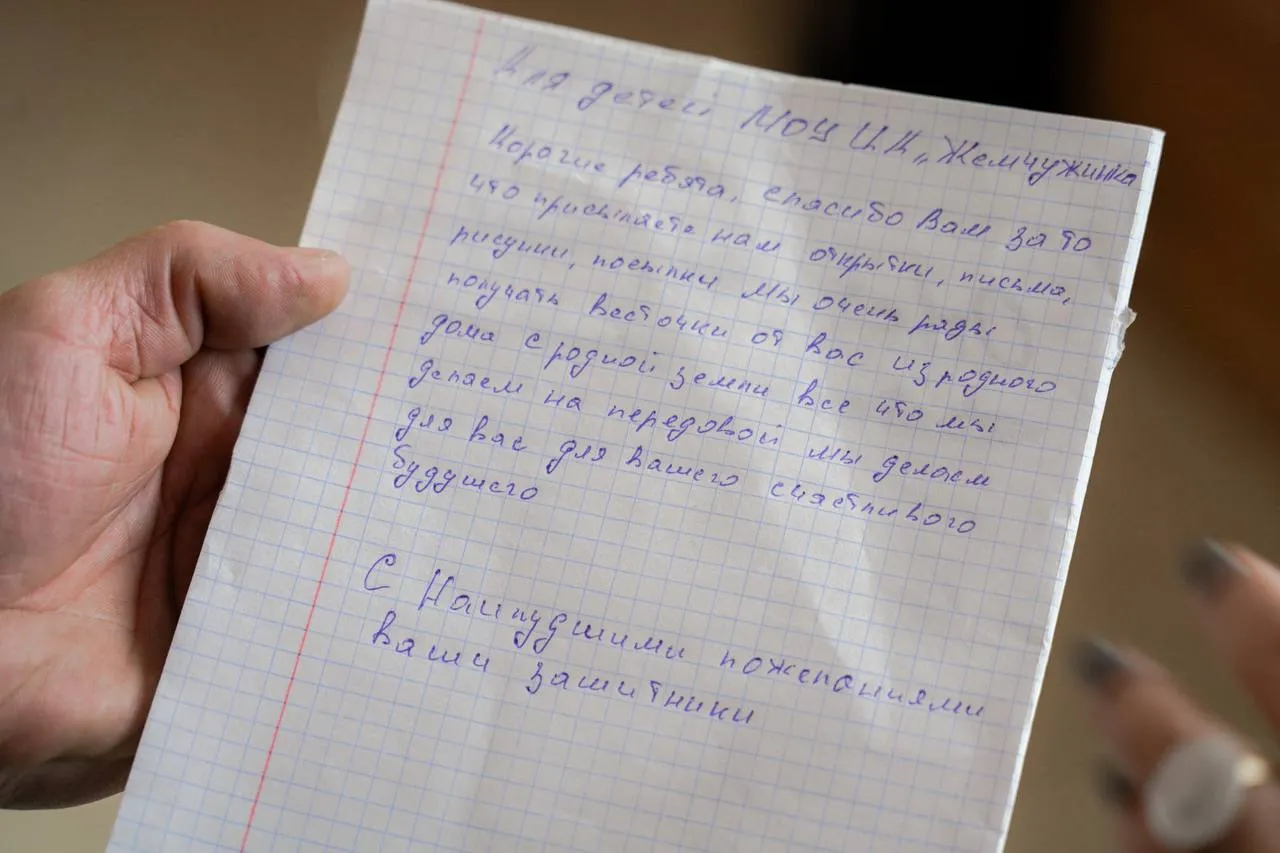 Для детей МОУ Ц.К „Жемчужинка
Дорогие ребята, спасибо Вам за то
что присылаете нам открытки, письма,
рисунки, посылки мы очень рады
получать весточки от вас из родного
дома с родной земли все что мы
делаем на передовой мы делаем
для вас для вашего счастливого
будушего
С Наилудшими пожеланиями
ваши зашитники